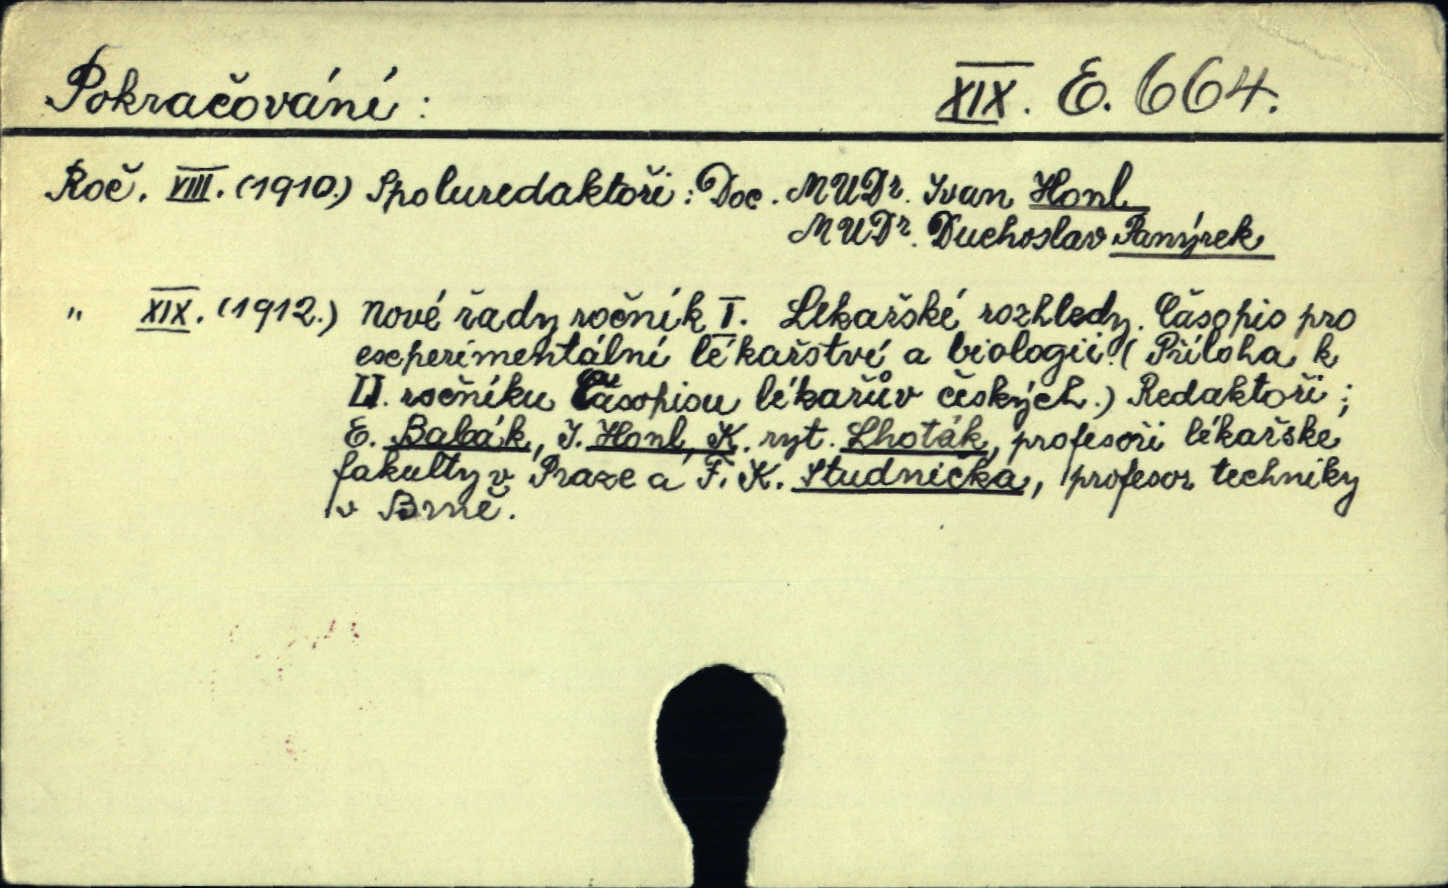 Pokračování: XIX. E. 664.
Roč. VIII. (1910.) Spoluredaktoři: Doc. MUDr. Ivan Honl
MUDr. Duchoslav Panýrek
" XIX. (1912.) nové řady ročník I. Lékařské rozhledy. Časopis pro
experimentální lékařství a biologii. (Příloha k
LI. ročníku Časopisu lékařův českých.) Redaktoři;
E. Babák, I. Honl, K. ryt. Lhoták, profesoři lékařske
fakulty v Praze a F. K. Studnička, profesor techniky
v Brně.